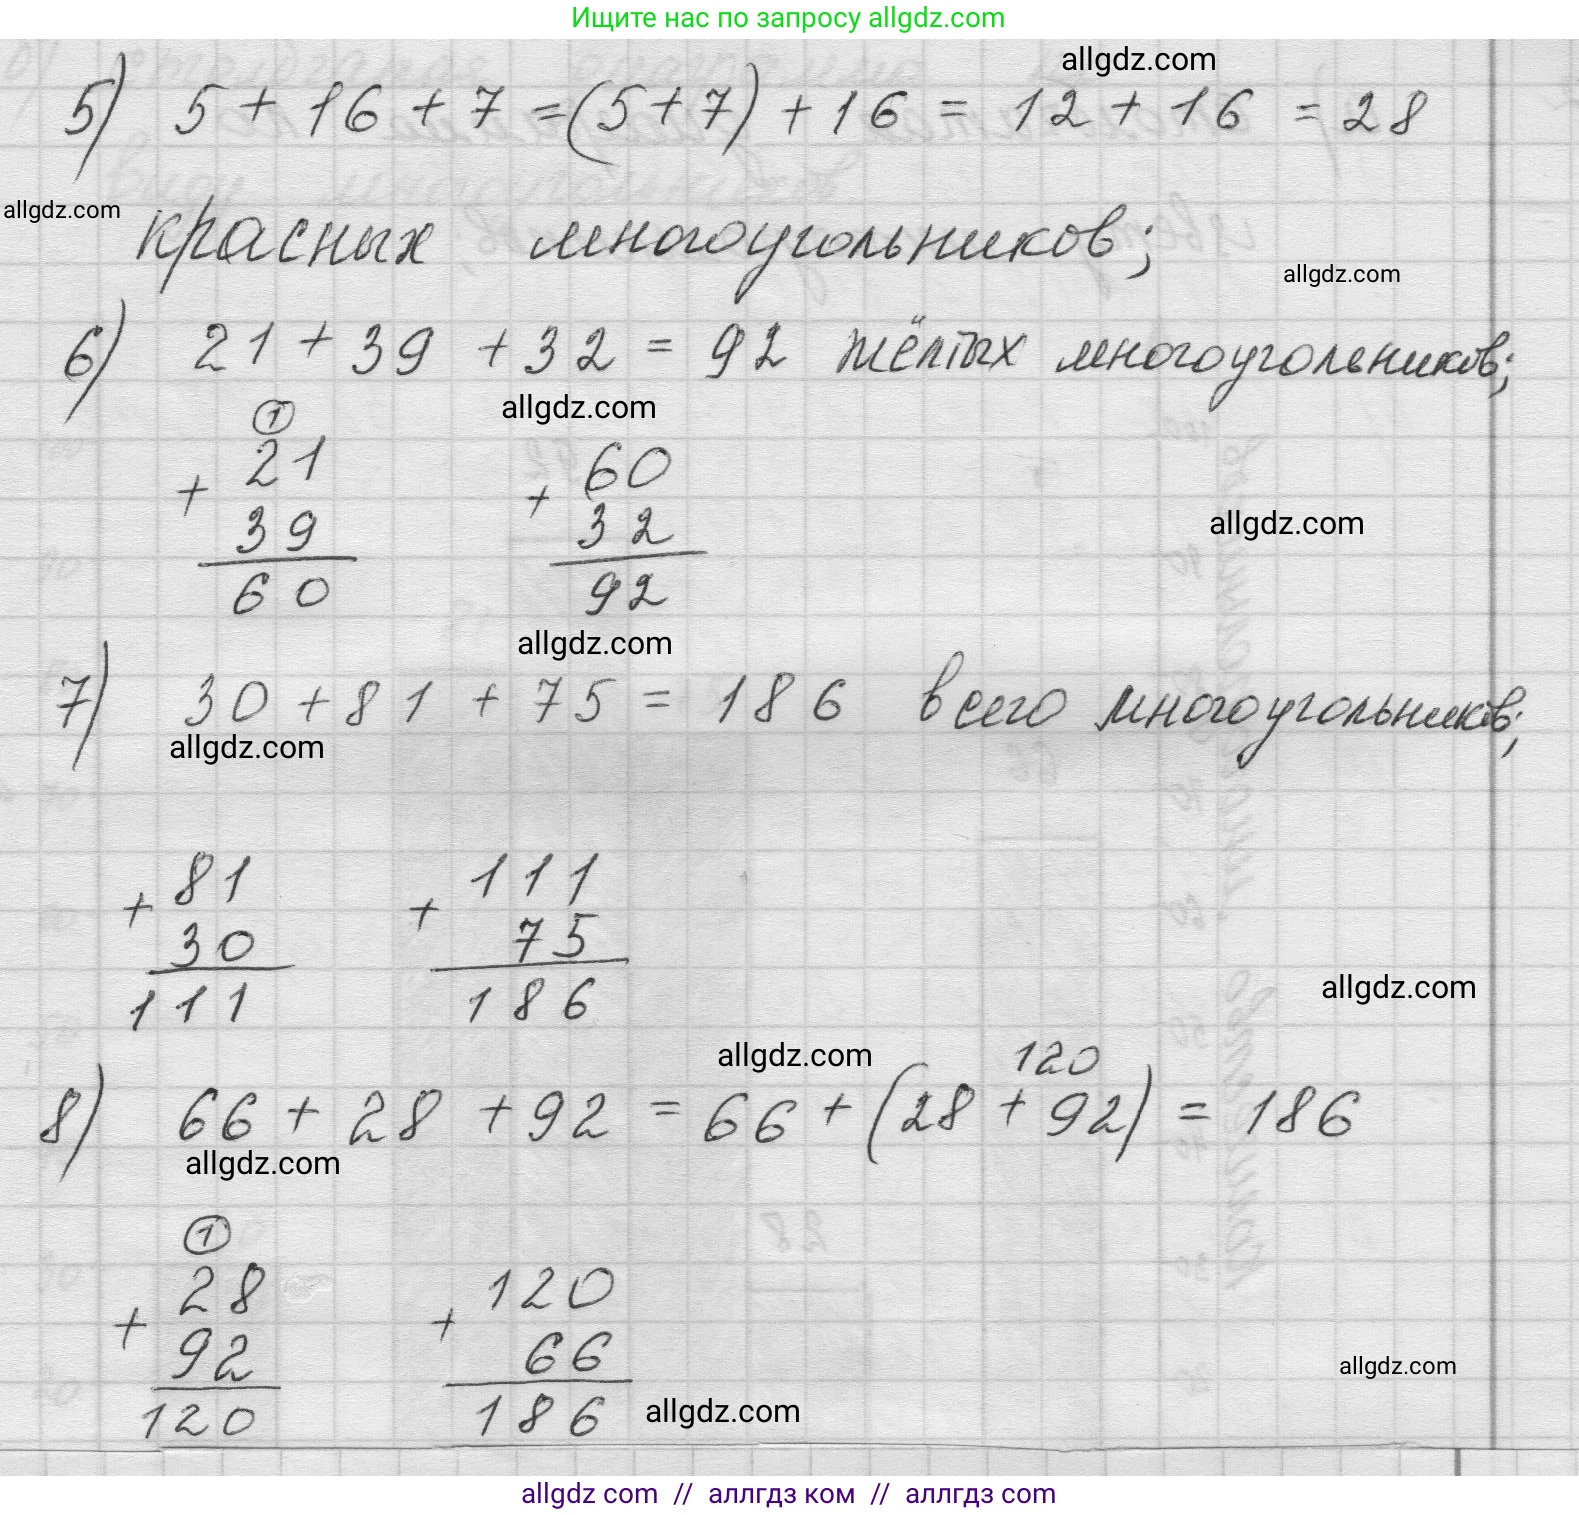 Ищите нас по запросу allgdz.com
allgdz.com
5) 5 + 16 + 7 = (5 + 7) + 16 = 12 + 16 = 28
allgdz.com
красных многоугольников;
allgdz.com
6) 21 + 39 + 32 = 92 жёлтых многоугольников;
allgdz.com
1
21 60
+ +
39 32
allgdz.com
60 92
allgdz.com
7) 30 + 81 + 75 = 186 всего многоугольников;
allgdz.com
81 111
+ +
30 75
111 186
allgdz.com
allgdz.com
120
8) 66 + 28 + 92 = 66 + (28 + 92) = 186
allgdz.com
1
28 120
+ +
92 66
allgdz.com
120 186
allgdz.com
allgdz com // аллгдз ком // аллгдз com